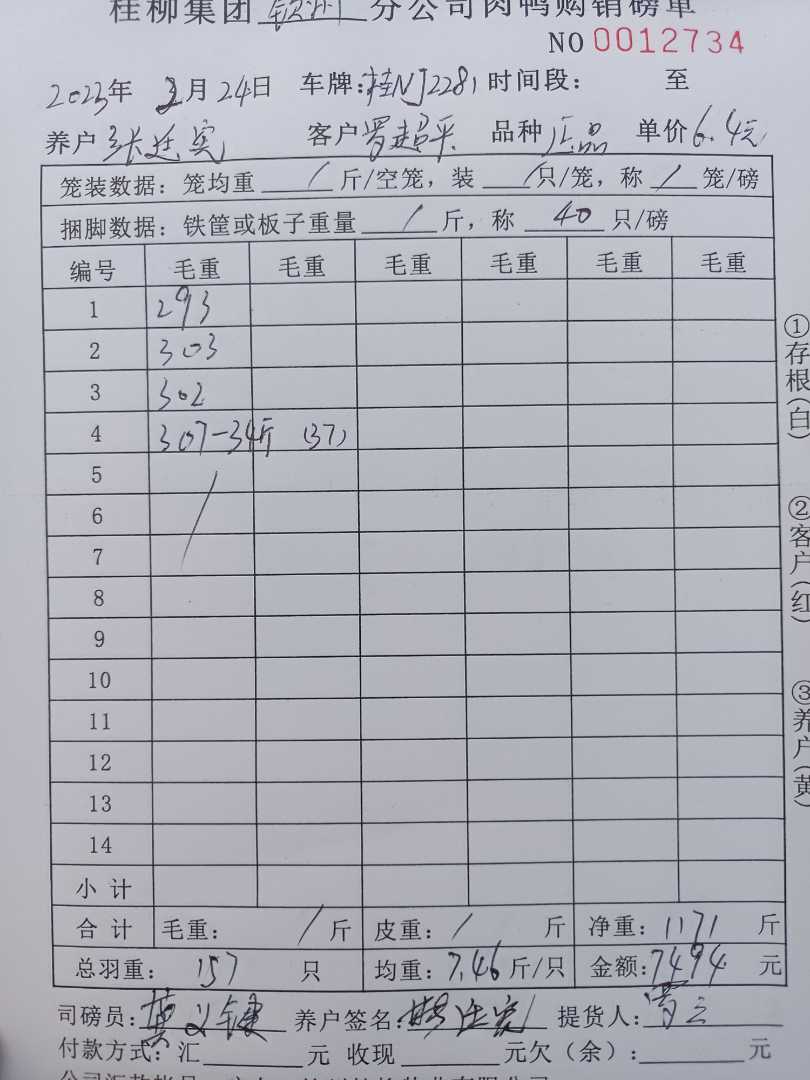 桂柳集团 钦州 分公司肉鸭购销磅单
NO 0012734
2023年 3月 24日 车牌:桂NJ2281 时间段: 至
养户 张廷宪 客户 罗超平 品种 正品 单价 6.4元
笼装数据: 笼均重 / 斤/空笼, 装 / 只/笼, 称 / 笼/磅
捆脚数据: 铁筐或板子重量 / 斤, 称 40 只/磅
编号 毛重 毛重 毛重 毛重 毛重 毛重
1 293
2 303
3 302
4 307-34斤 (37)
5
6
7
8
9
10
11
12
13
14
小计
合计 毛重: / 斤 皮重: / 斤 净重: 1171 斤
总羽重: 157 只 均重: 7.46 斤/只 金额: 7494 元
司磅员: 养户签名: 提货人:
付款方式: 汇 元 收现 元欠(余): 元
①存根(白)
②客户(红)
③养户(黄)